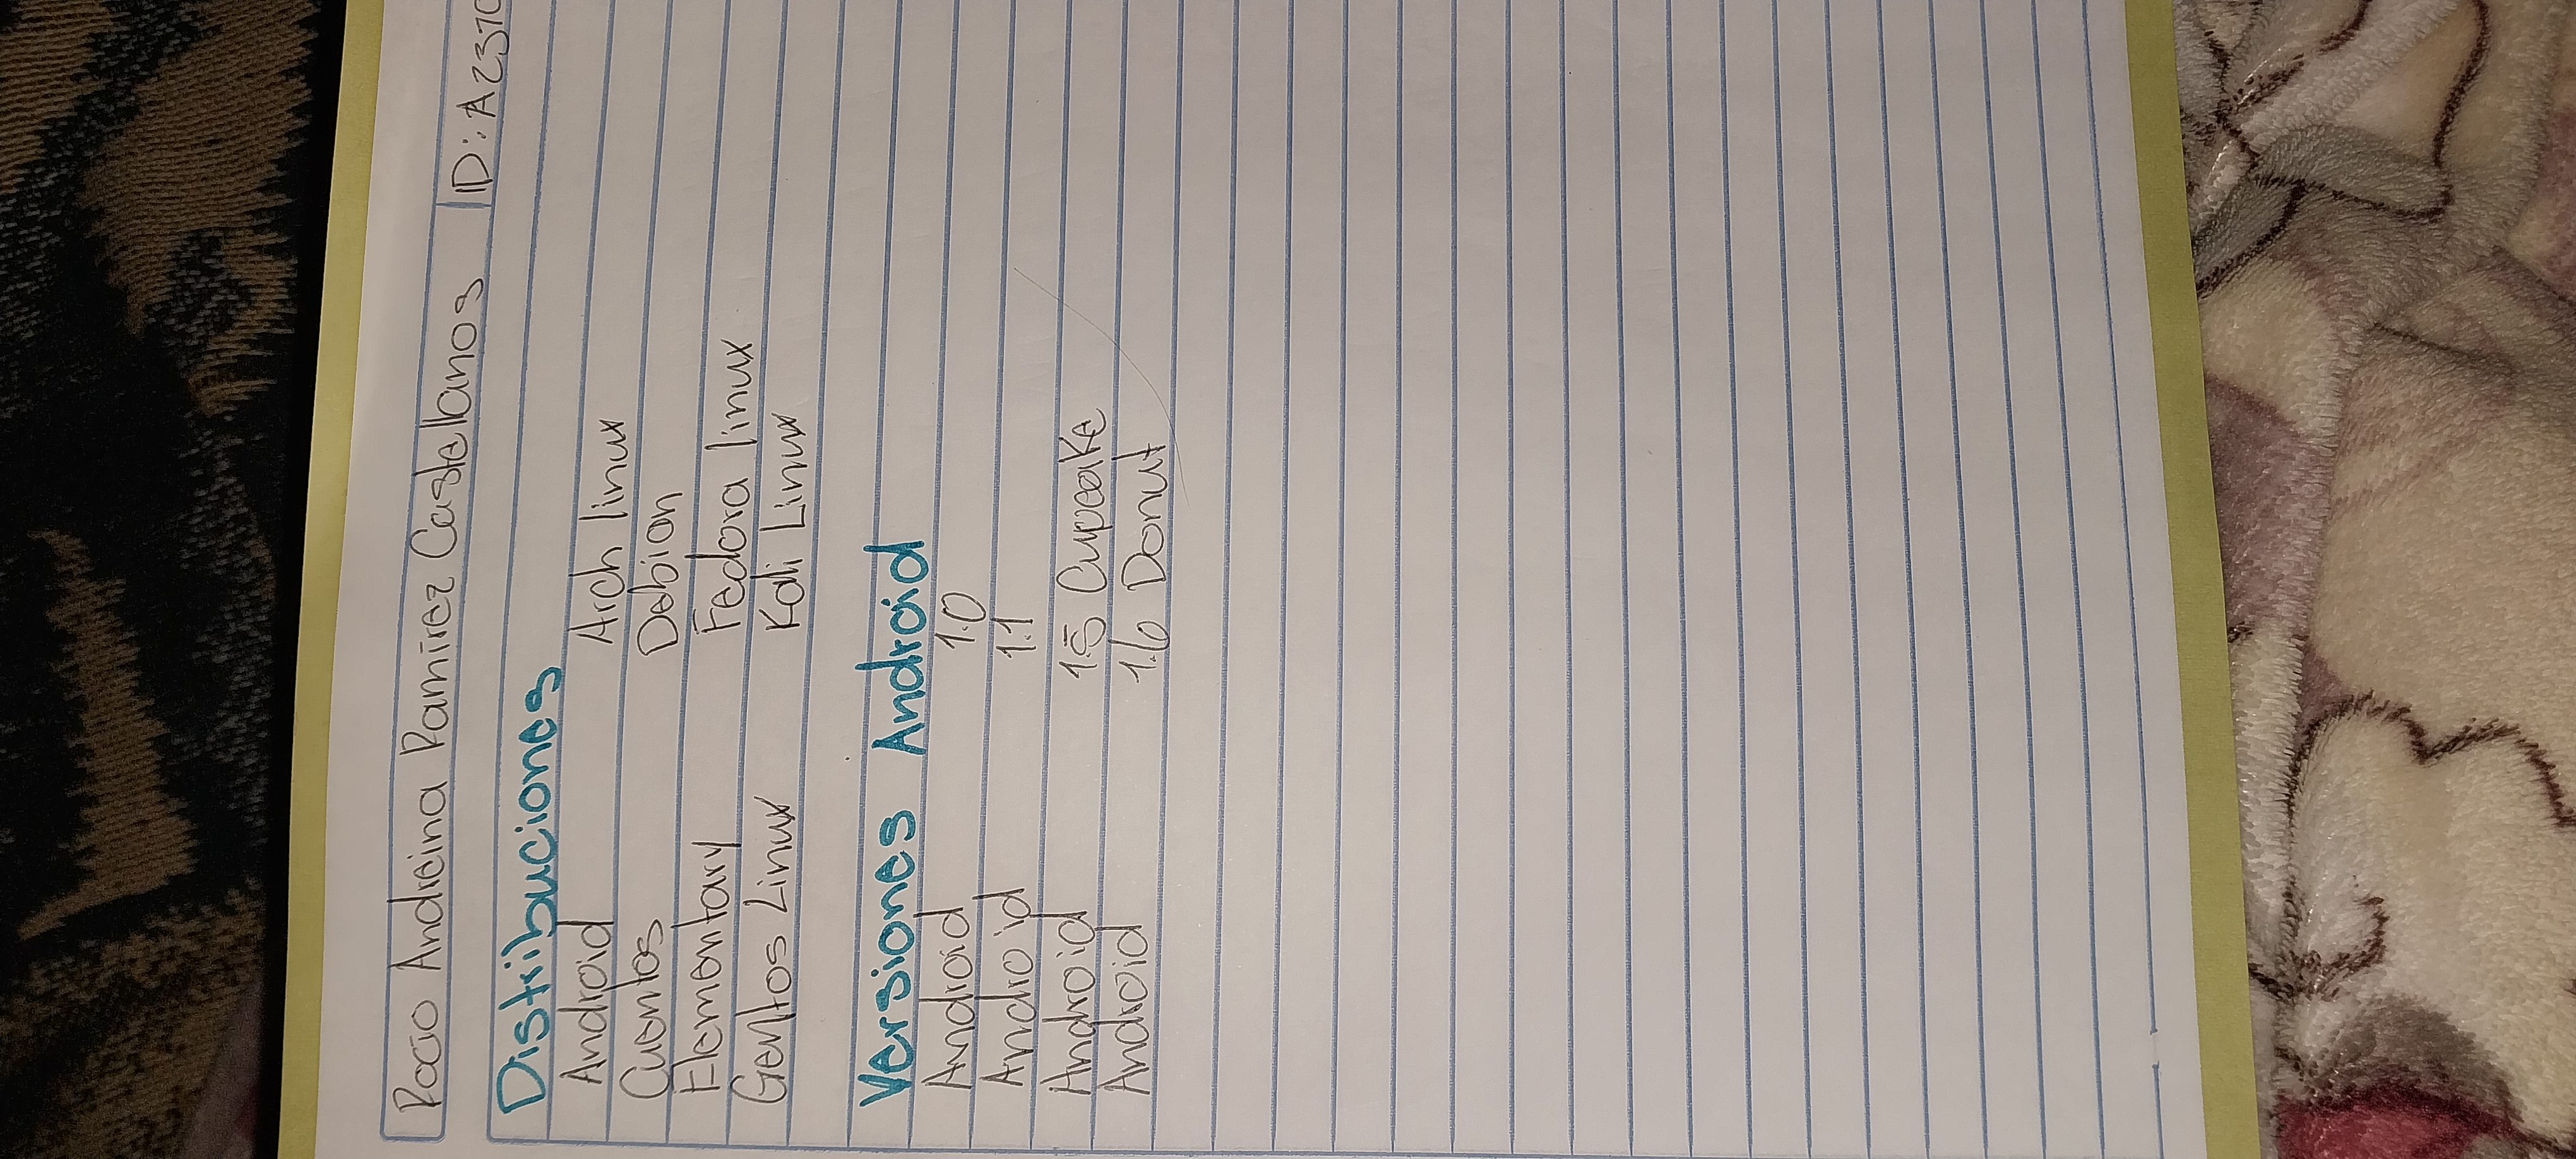 Rocio Andreina Ramirez Castellanos ID: A2370
Distribuciones
Android Arch linux
Cuentos Debian
Elementary Fedora linux
Gentos Linux Kali Linux
Versiones Android
Android 1.0
Android 1.1
Android 1.5 Cupcake
Android 1.6 Donut